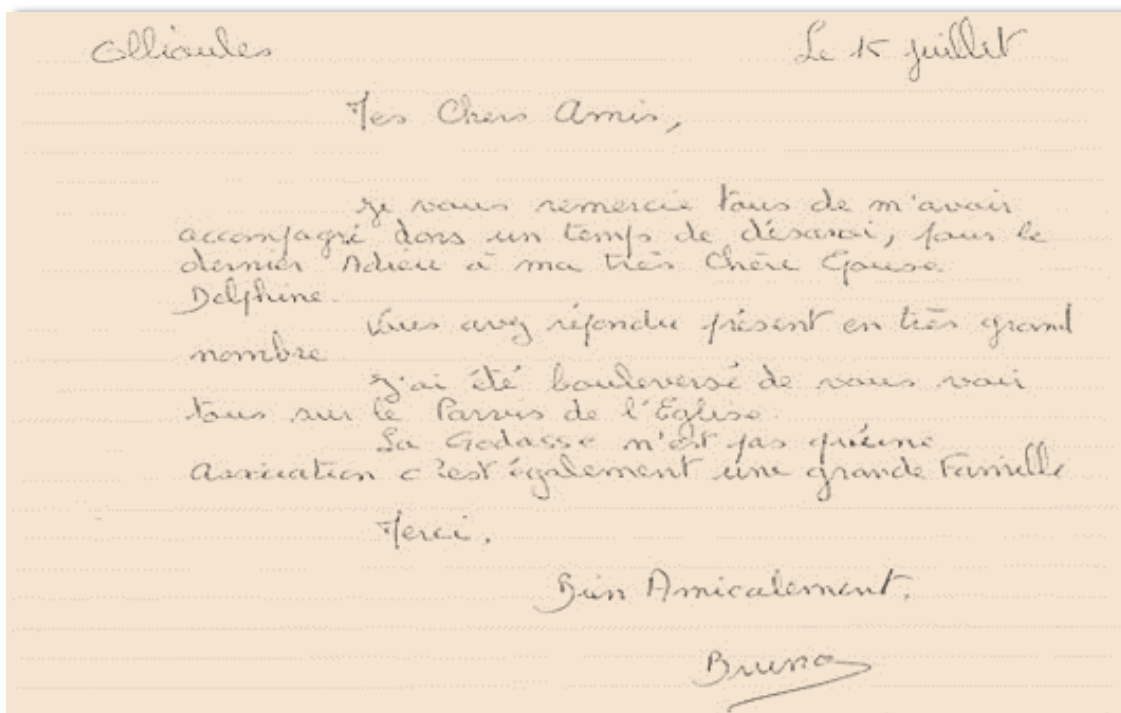 Ollioules Le 15 juillet
Mes Chers Amis,
Je vous remercie tous de m'avoir
accompagné dans un temps de désaroi, pour le
dernier Adieu à ma très Chère Epouse.
Delphine.
Vous avez répondu présent en très grand
nombre
J'ai été bouleversé de vous voir
tous sur le Parvis de l'Eglise.
La Godasse n'est pas qu'une
Association c'est également une grande Famille
Merci.
Bien Amicalement.
Bruno